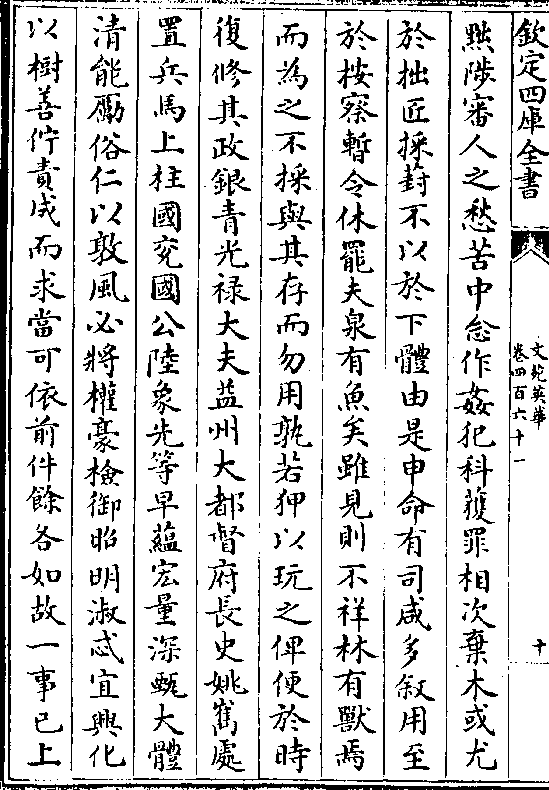 欽定四庫全書
文苑英華
卷四百六十一
十
黜陟審人之愁苦中念作姦犯科獲罪相次棄木或尤
於拙匠採葑不以於下體由是申命有司咸多叙用至
於按察暫令休罷夫泉有魚矣雖見則不祥林有獸焉
而為之不採與其存而勿用孰若狎以玩之俾便於時
復修其政銀青光禄大夫益州大都督府長史姚嶲處
置兵馬上柱國兖國公陸象先等早藴宏量深甄大體
清能勵俗仁以敦風必將權豪檢御昭明淑忒宜興化
以樹善佇責成而求當可依前件餘各如故一事已上